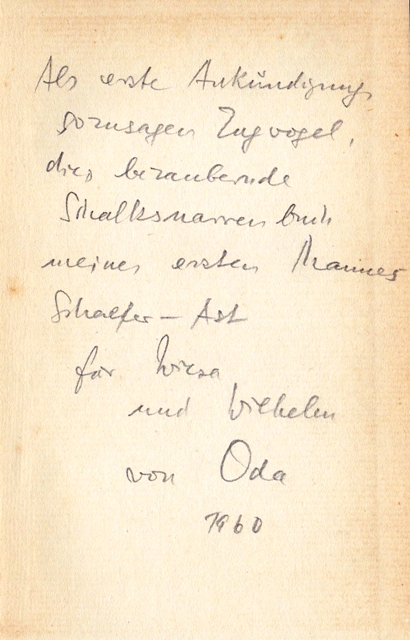 Als erste Ankündigung,
sozusagen Zugvogel,
dies bezaubernde
Schalksnarrenbuch
meines ersten Mannes
Schaefer-Ast
für
und Wilhelm
von Oda
1960